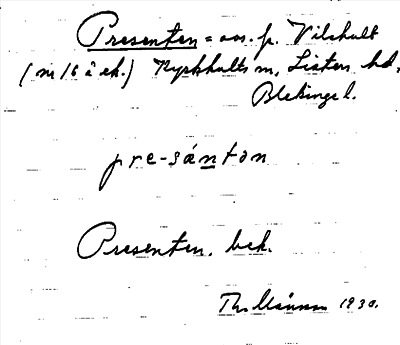 Presenten = os. p. Vilshult
(nr 16 å ek.) Kyrkhults sn, Listers hd,
Blekinge l.
pre-sánton
Presenten. bek.
Th. Månsson 1930.